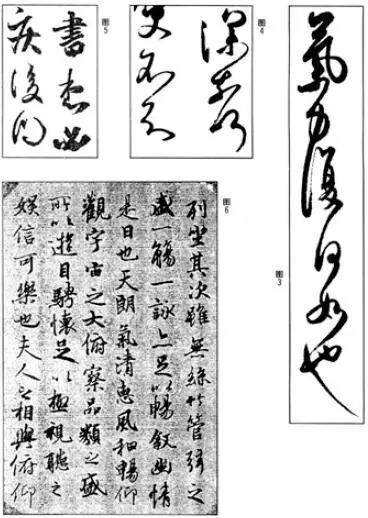 图3
氣力復何如也
图4
图5
書 必
图6
列坐其次雖無絲竹管弦之
盛一觴一詠亦足以暢敘幽情
是日也天朗氣清惠風和暢仰
觀宇宙之大俯察品類之盛
所以遊目騁懷足以極視聽之
娛信可樂也夫人之相與俯仰